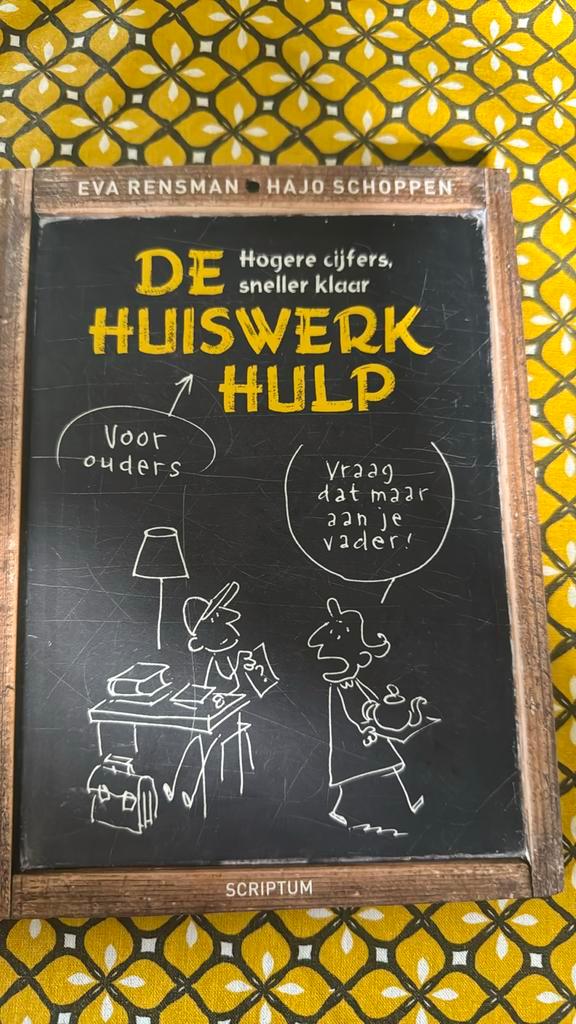 EVA RENSMAN • HAJO SCHOPPEN
DE
Hogere cijfers,
sneller klaar
HUISWERK
HULP
Voor
ouders
Vraag
dat maar
aan je
vader!
?
SCRIPTUM